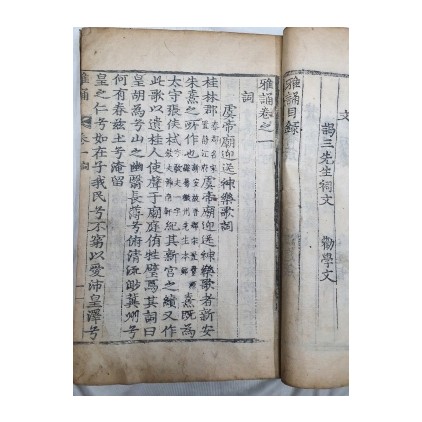 文
謁三先生祠文 勸學文
雅誦目錄
雅誦卷之一
詞
虞帝廟迎送神樂歌詞
桂林郡 虞帝廟迎送神樂歌者新安
朱熹之所作也 熹既爲
太守張侯栻 紀其新宮之績又作
此歌以遺桂人使聲于廟庭侑牲璧焉其詞曰
皇胡爲兮山之幽翳長薄兮俯清流渺冀州兮
何有眷茲土兮淹留
皇之仁兮如在子我民兮不窮以愛沛皇澤兮
雅誦 卷一 詞 一